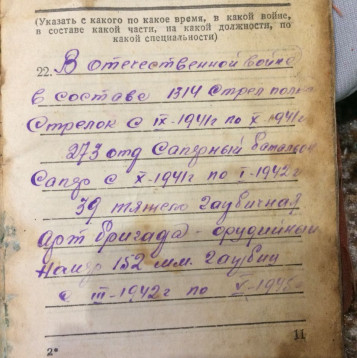 (Указать с какого по какое время, в какой войне,
в составе какой части, на какой должности, по
какой специальности)
22. В отечественной войне
в составе 1314 стрел полка
Стрелок с IX-1941г по X-1941г
273 отд Саперный батальон
Сапер с X-1941г по I-1942г
39 тяжело гаубичная
Арт бригада орудийный
Номер 152 мм. гаубиц
с III-1942г по V-1945г
2*
11